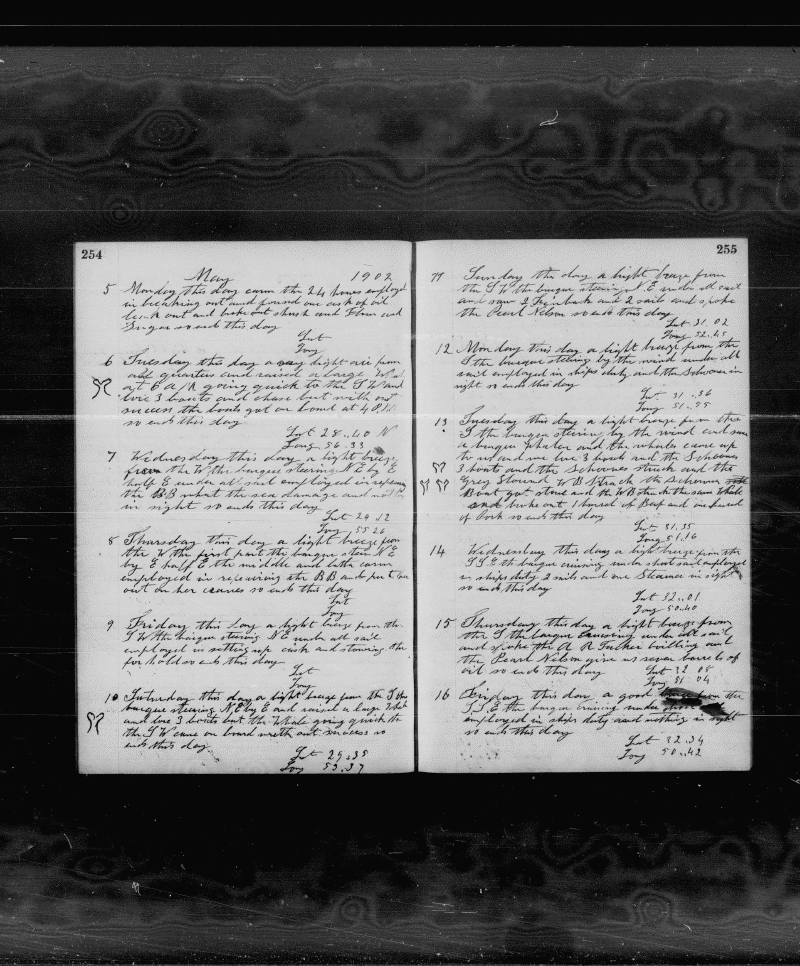 254
May 1902
5 Monday this day calm the 24 hours employed
in breaking out and found one cask of oil
leak out and broke out and Flour and
Sugar so ends this day
Lat
Long
6 Tuesday this day a very light air from
all quarters and raised a large
at 6 A/M going quick to the S W and
lore 3 boats and chase but with out
success the boats got on board at 4 P.M.
so ends this day
Lat 28..40 N
Long 56.33
7 Wednesday this day a light breeze
from the W the barque steering N E by E
half E under all sail employed in repairing
the BB what the sea damage and
in sight so ends this day
Lat 29 12
Long 55 26
8 Thursday this day a light breeze from
the W the first part the barque steer N E
by E half E the middle and latter calm
employed in repairing the BB and put
out on her cranes so ends this day
Lat
Long
9 Friday this day a light breeze from the
S W the barque steering N E under all sail
employed in setting up cask and stowing the
for hold so ends this day
Lat
Long
10 Saturday this day a light breeze from the S the
barque steering N E by E and raised a large Whale
and lore 3 boats but the Whale going quick to
the S W came on board with out success so
ends this day
Lat 29..35
Long 53.37
255
11 Sunday this day a light breeze from
the S W the barque steering N E under all sail
and saw 2 Finbacks and 2 sails and spoke
the Pearl Nelson so ends this day
Lat 31.02
Long 52.45
12 Monday this day a light breeze from the
S the barque steering by the wind under all
sail employed in ships duty and the Schooner in
sight so ends this day
Lat 31..36
Long 51..55
13 Tuesday this day a light breeze from the
S the barque steering by the wind and saw
a barque whaler and the whales came up
to us and we lore 3 boats and the Schooner
3 boats and the Schooner struck and the
Grey Hound W B Struck the Schooner
Boat got stove and the WB struck the same Whale
and broke out 1 barrel of Beef and one barrel
of Pork so ends this day
Lat 31.35
Long 51.16
14 Wednesday this day a light breeze from the
S S E the barque cruising under short sail employed
in ships duty 2 sails and one Steamer in sight
so ends this day
Lat 32..01
Long 50.40
15 Thursday this day a light breeze from
the S the barque cruising under all sail
and spoke the A R Tucker boiling and
the Pearl Nelson give us seven barrels of
oil so ends this day Lat 32 08
Long 51 04
16 Friday this day a good from the
S S E the barque cruising under
employed in ships duty and nothing in sight
so ends this day
Lat 32.34
Long 50..42